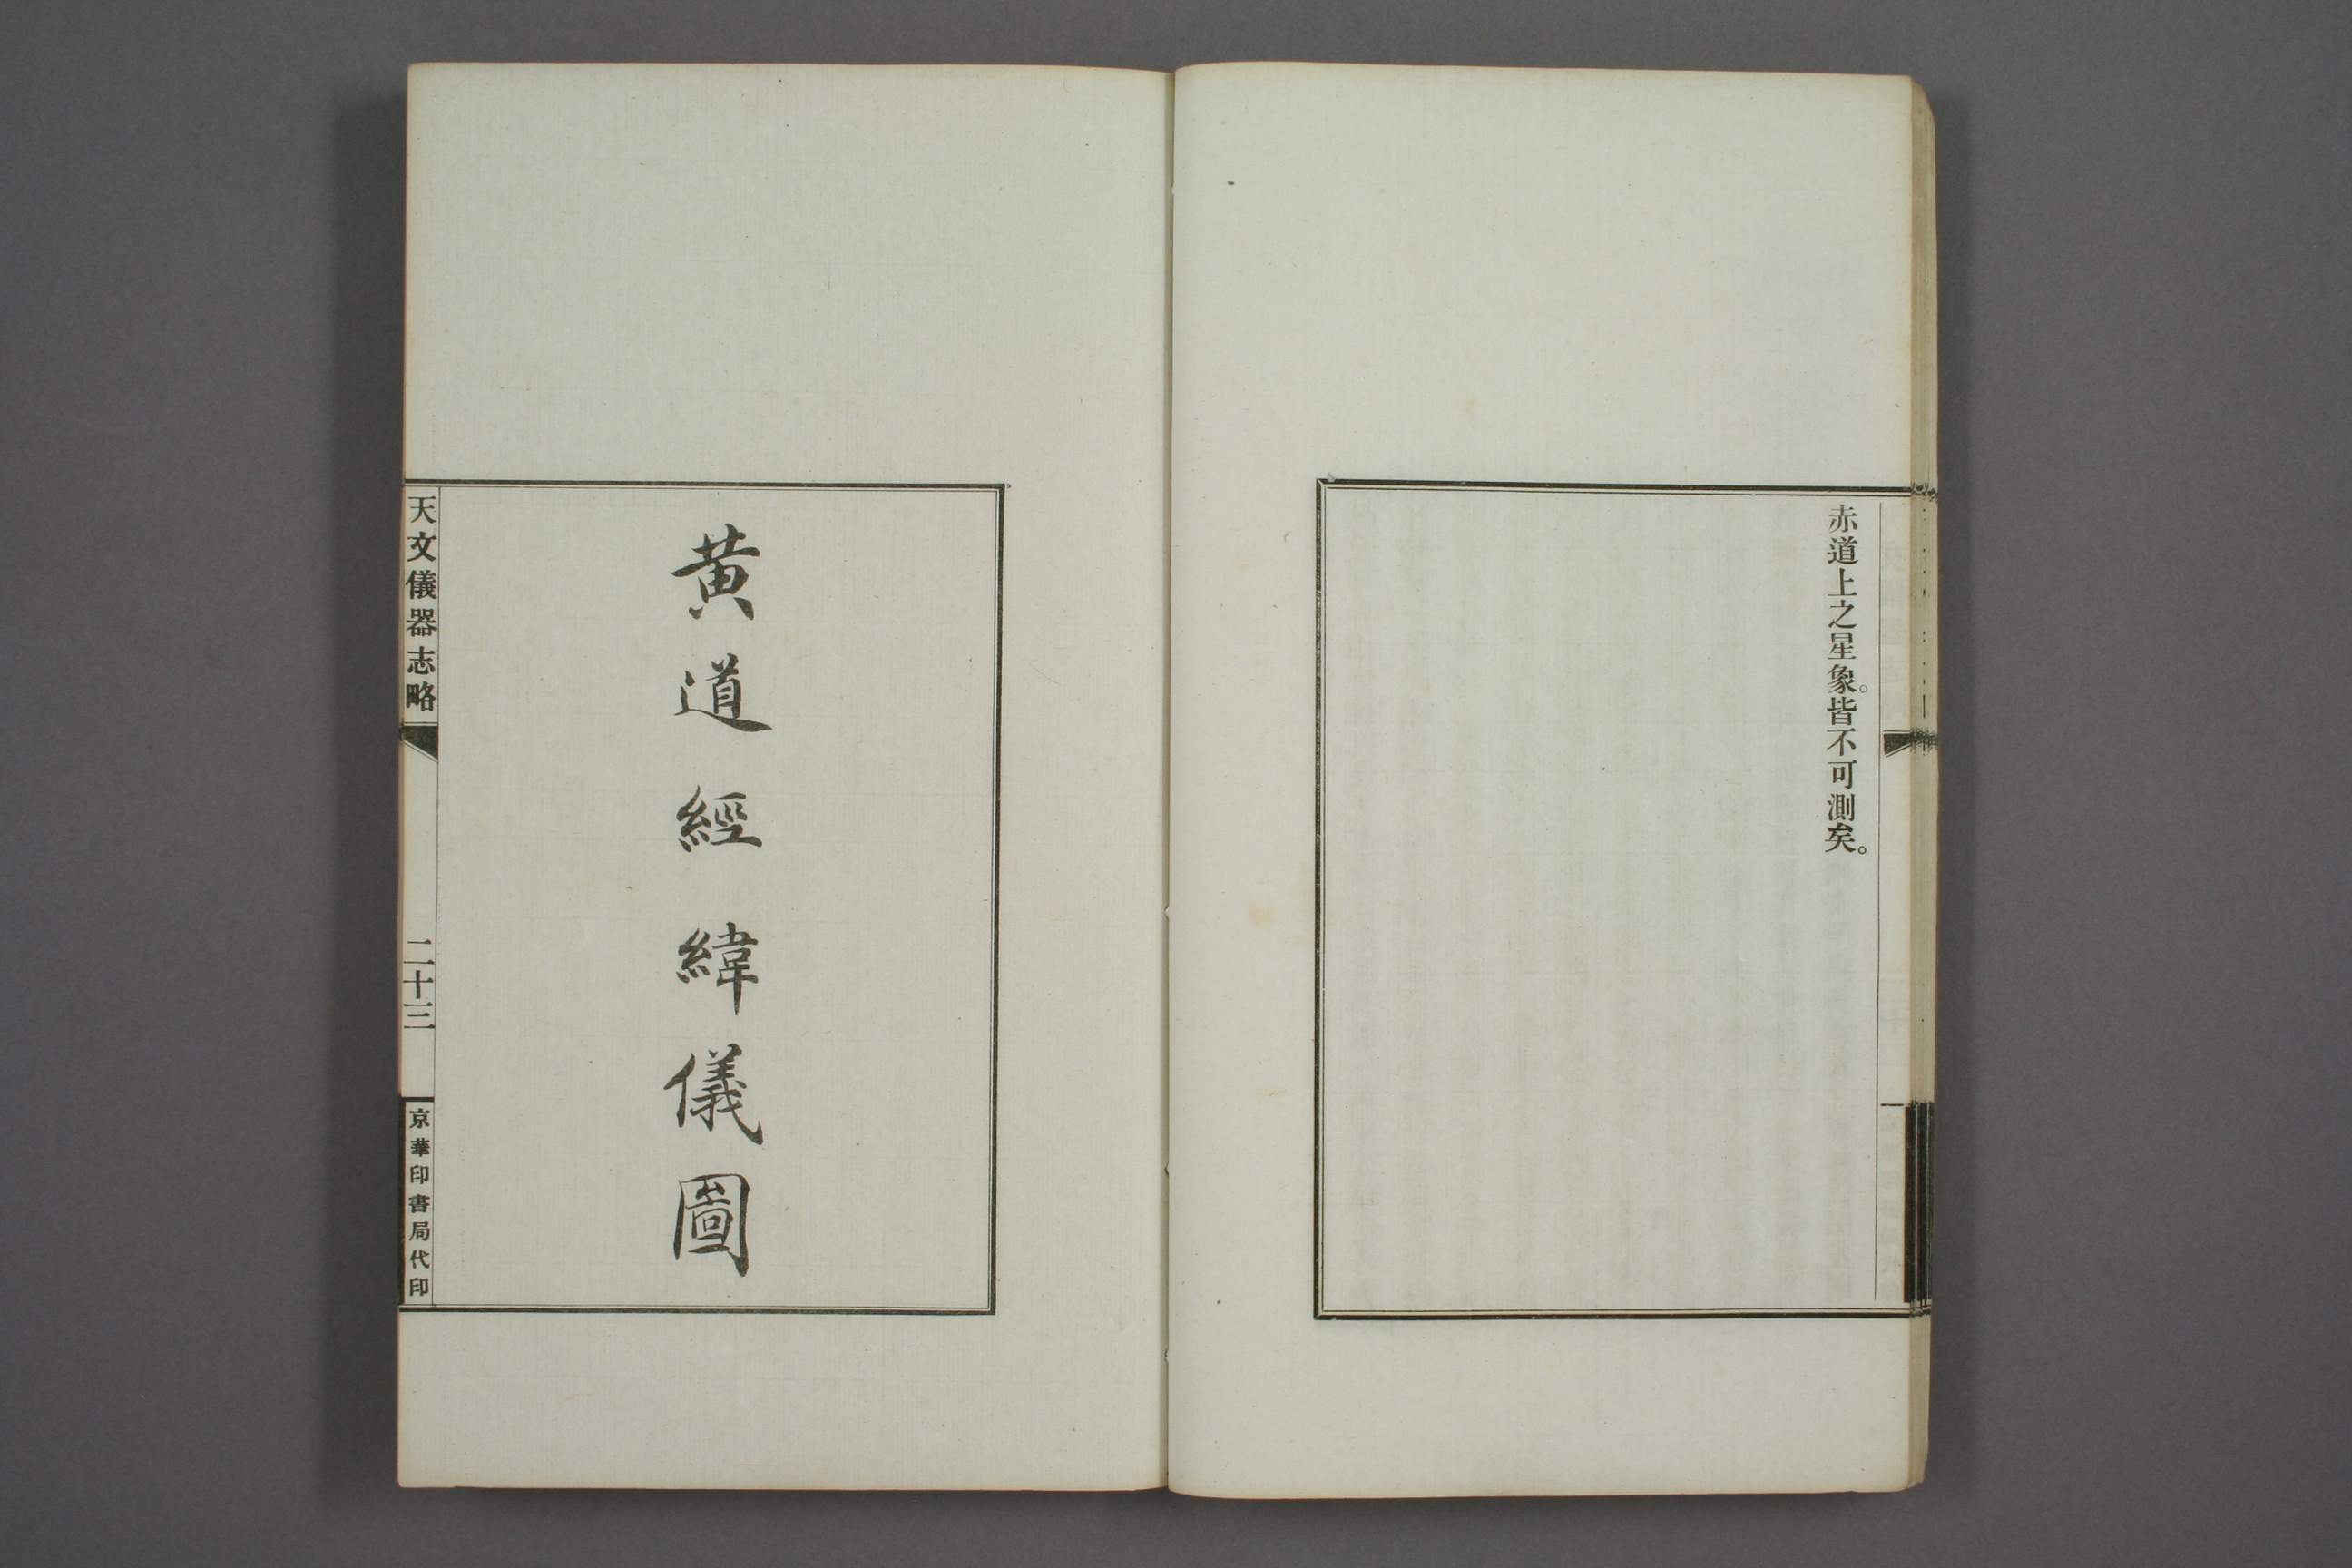 赤道上之星象。皆不可測矣。
黄道經緯儀圖
天文儀器志略
二十三
京華印書局代印